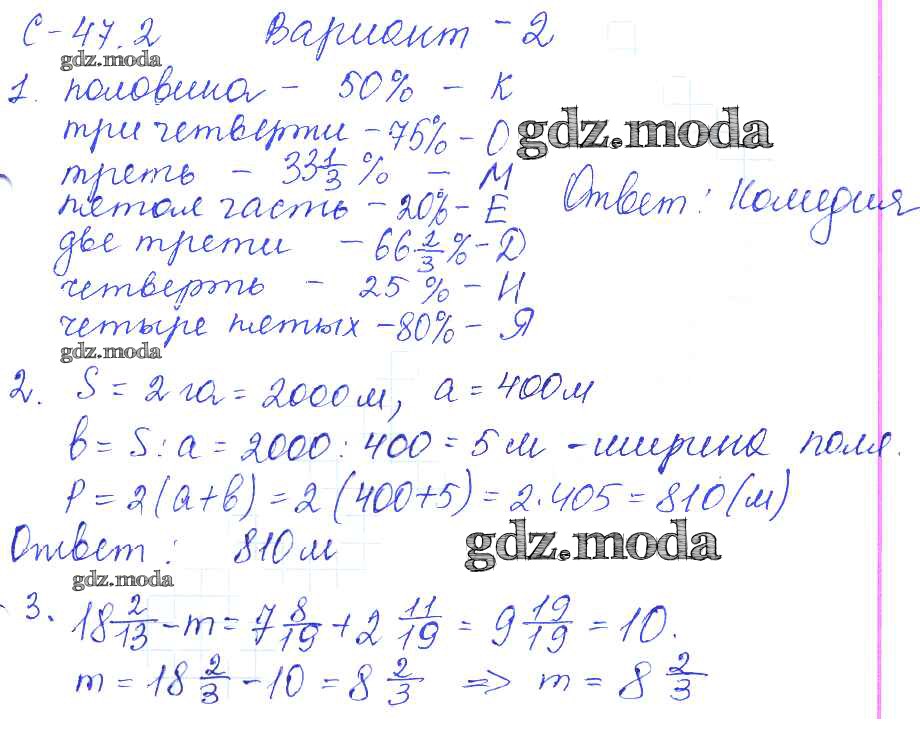 С-47.2 Вариант - 2
gdz.moda
1. половина - 50% - К
три четверти - 75% - О gdz.moda
треть - 33 1/3 % - М
пятая часть - 20% - Е Ответ: Комедия
две трети - 66 2/3 % - Д
четверть - 25 % - И
четыре пятых - 80% - Я
gdz.moda
2. S = 2 га = 2000 м, a = 400 м
b = S : a = 2000 : 400 = 5 м - ширина поля.
P = 2(a+b) = 2(400+5) = 2·405 = 810 (м)
Ответ: 810 м gdz.moda
gdz.moda
3. 18 2/13 - m = 7 8/19 + 2 11/19 = 9 19/19 = 10.
m = 18 2/3 - 10 = 8 2/3 => m = 8 2/3